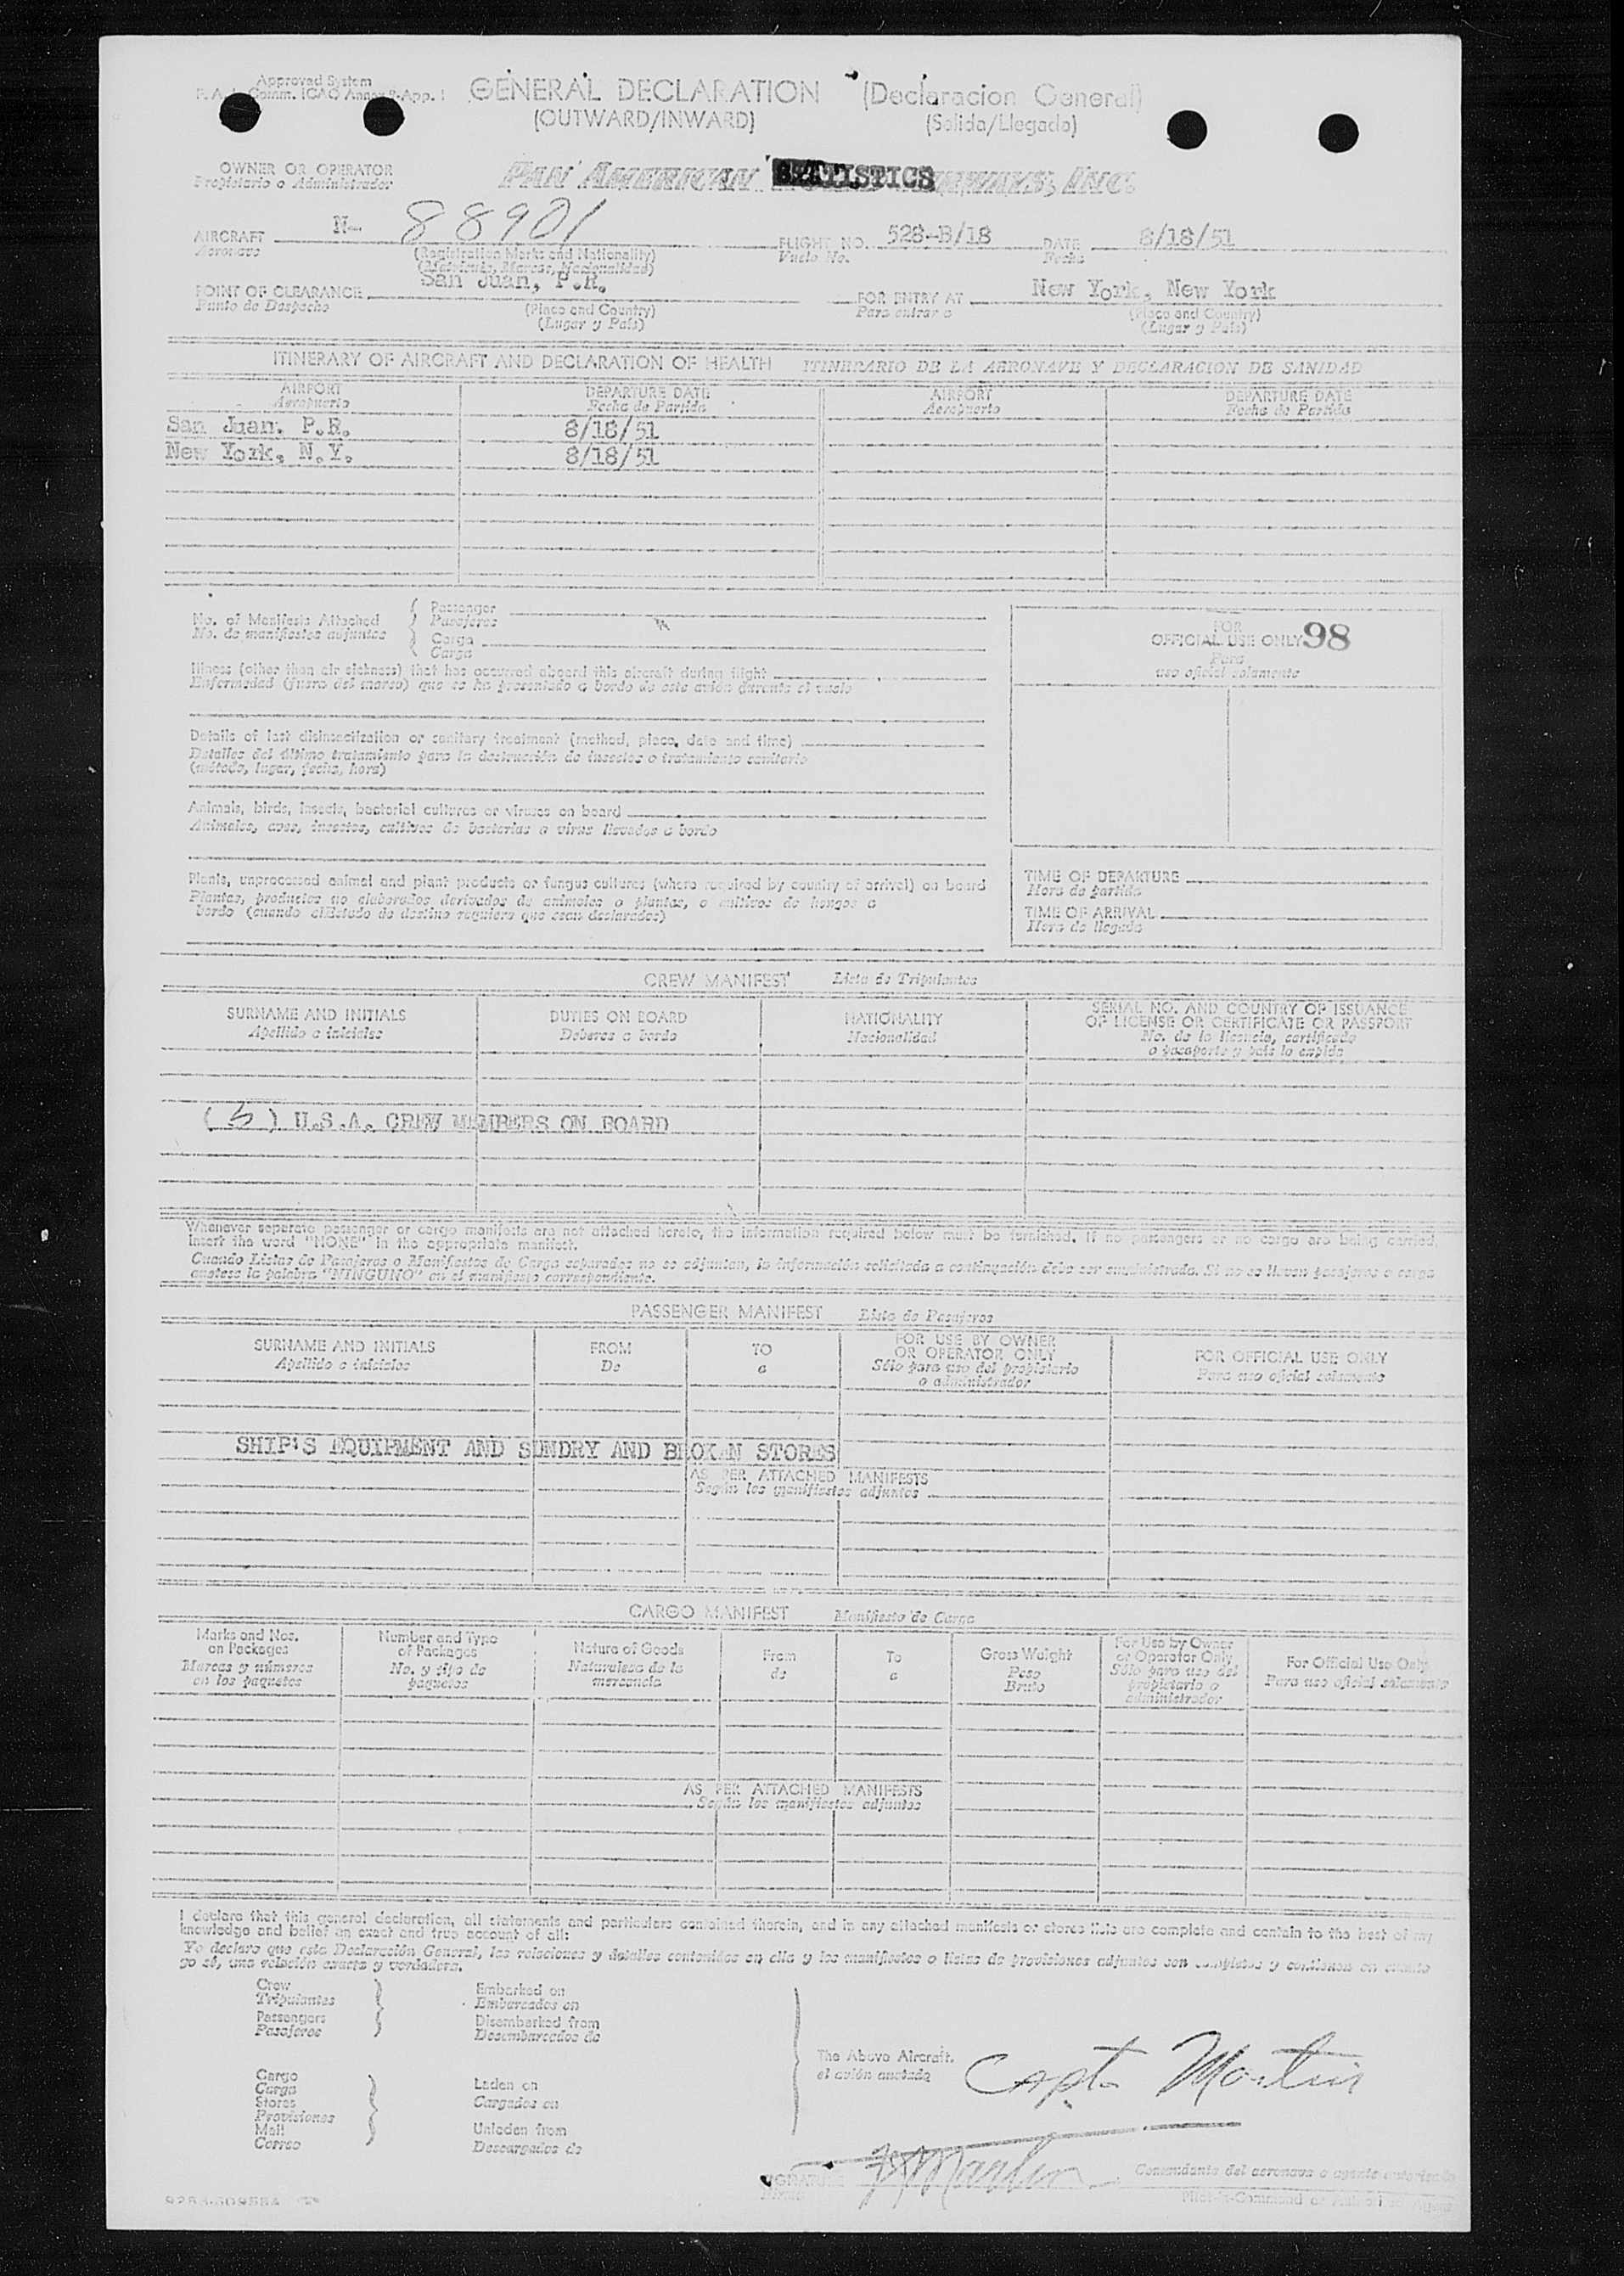 Approved System
GENERAL DECLARATION (Declaracion General)
(OUTWARD/INWARD) (Salida/Llegada)
OWNER OR OPERATOR PAN AMERICAN STATISTICS AIRWAYS, INC.
Propietario o Administrador
AIRCRAFT N- 88901 FLIGHT NO. 528-B/18 DATE 8/18/51
Aeronave (Registration Marks and Nationality) Vuelo No. Fecha
(Matricula, Marcas, Nacionalidad)
POINT OF CLEARANCE San Juan, P.R. FOR ENTRY AT New York, New York
Punto de Despacho (Place and Country) Para entrar a (Place and Country)
(Lugar y País) (Lugar y País)
ITINERARY OF AIRCRAFT AND DECLARATION OF HEALTH ITINERARIO DE LA AERONAVE Y DECLARACION DE SANIDAD
AIRPORT DEPARTURE DATE AIRPORT DEPARTURE DATE
Aeropuerto Fecha de Partida Aeropuerto Fecha de Partida
San Juan, P.R. 8/18/51
New York, N.Y. 8/18/51
No. of Manifests Attached Passenger
No. de manifiestos adjuntos Pasajeros
Cargo
Carga
FOR
OFFICIAL USE ONLY 98
Para
uso oficial solamente
Illness (other than air sickness) that has occurred aboard this aircraft during flight
Enfermedad (fuera del mareo) que se ha presentado a bordo de este avión durante el vuelo
Details of last disinsectization or sanitary treatment (method, place, date and time)
Detalles del último tratamiento para la destrucción de insectos o tratamiento sanitario
(método, lugar, fecha, hora)
Animals, birds, insects, bacterial cultures or viruses on board
Animales, aves, insectos, cultivos de bacterias o virus llevados a bordo
Plants, unprocessed animal and plant products or fungus cultures (where required by country of arrival) on board
Plantas, productos no elaborados derivados de animales o plantas, o cultivos de hongos a
bordo (cuando el Estado de destino requiera que sean declarados)
TIME OF DEPARTURE
Hora de partida
TIME OF ARRIVAL
Hora de llegada
CREW MANIFEST Lista de Tripulantes
SURNAME AND INITIALS DUTIES ON BOARD NATIONALITY SERIAL NO. AND COUNTRY OF ISSUANCE
Apellido o iniciales Deberes a bordo Nacionalidad OF LICENSE OR CERTIFICATE OR PASSPORT
No. de la licencia, certificado
o pasaporte y país lo expide
(5) U.S.A. CREW MEMBERS ON BOARD
Whenever separate passenger or cargo manifests are not attached hereto, the information required below must be furnished. If no passengers or no cargo are being carried,
insert the word "NONE" in the appropriate manifest.
Cuando Listas de Pasajeros o Manifiestos de Carga separados no se adjuntan, la información solicitada a continuación debe ser suministrada. Si no se llevan pasajeros o carga
anótese la palabra "NINGUNO" en el manifiesto correspondiente.
PASSENGER MANIFEST Lista de Pasajeros
SURNAME AND INITIALS FROM TO FOR USE BY OWNER FOR OFFICIAL USE ONLY
Apellido o iniciales De a OR OPERATOR ONLY Para uso oficial solamente
Sólo para uso del propietario
o administrador
SHIP'S EQUIPMENT AND SUNDRY AND BROKEN STORES
AS PER ATTACHED MANIFESTS
Según los manifiestos adjuntos
CARGO MANIFEST Manifiesto de Carga
Marks and Nos. Number and Type Nature of Goods From To Gross Weight For Use by Owner For Official Use Only
on Packages of Packages Naturaleza de la de a Peso or Operator Only Para uso oficial solamente
Marcas y números No. y tipo de mercancía Bruto Sólo para uso del
en los paquetes paquetes propietario o
administrador
AS PER ATTACHED MANIFESTS
Según los manifiestos adjuntos
I declare that this general declaration, all statements and particulars contained therein, and in any attached manifests or stores lists are complete and contain to the best of my
knowledge and belief an exact and true account of all:
Yo declaro que esta Declaración General, las relaciones y detalles contenidos en ella y los manifiestos o listas de provisiones adjuntos son completos y contienen en cuanto
yo sé, una relación exacta y verdadera.
Crew Embarked on
Tripulantes Embarcados en
Passengers Disembarked from
Pasajeros Desembarcados de
The Above Aircraft.
el avión anotado
Capt. Martin
Cargo
Carga Laden on
Stores Cargados en
Provisiones
Mail Unladen from
Correo Descargados de
SIGNATURE Martin Comandante del aeronave o agente autorizado
Firma Pilot-in-Command or Authorized Agent